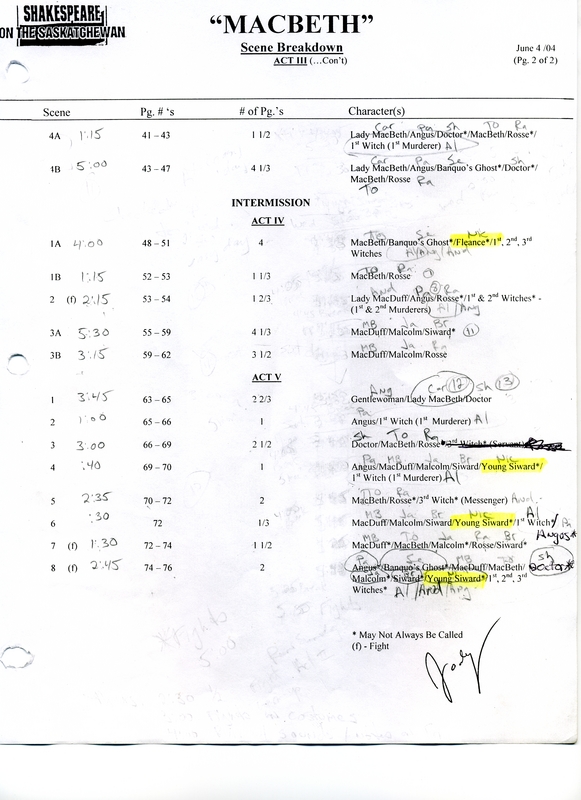 SHAKESPEARE
ON THE SASKATCHEWAN
“MACBETH”
Scene Breakdown
ACT III (…Con't)
June 4 /04
(Pg. 2 of 2)
Scene Pg. # 's # of Pg.'s Character(s)
Car Pa Sh TO Ra
4A 1:15 41 – 43 1 1/2 Lady MacBeth/Angus/Doctor*/MacBeth/Rosse*/
1st Witch (1st Murderer) Al
Car Pa Se Sh
4B 5:00 43 – 47 4 1/3 Lady MacBeth/Angus/Banquo's Ghost*/Doctor*/
MacBeth/Rosse Ra
TO
INTERMISSION
ACT IV
TO Se Nic
1A 4:00 48 – 51 4 MacBeth/Banquo's Ghost*/Fleance*/1st, 2nd, 3rd
Witches Al/Ang/And
To Ra
1B 1:15 52 – 53 1 1/3 MacBeth/Rosse
And P Ra
2 (f) 2:15 53 – 54 1 2/3 Lady MacDuff/Angus/Rosse*/1st & 2nd Witches* -
(1st & 2nd Murderers) Al/Ang
MB Ja Br
3A 5:30 55 – 59 4 1/3 MacDuff/Malcolm/Siward* 11
MB Ja Ra
3B 3:15 59 – 62 3 1/2 MacDuff/Malcolm/Rosse
ACT V
Ang Car 12 Sh 13
1 3:45 63 – 65 2 2/3 Gentlewoman/Lady MacBeth/Doctor
Pa
2 1:00 65 – 66 1 Angus/1st Witch (1st Murderer) Al
Sh TO Ra
3 3:00 66 – 69 2 1/2 Doctor/MacBeth/Rosse*/2nd Witch* (Servant)
Pa MB Ja Br Nic
4 :40 69 – 70 1 Angus/MacDuff/Malcolm/Siward/Young Siward*/
1st Witch (1st Murderer) Al
TO Ra
5 2:35 70 – 72 2 MacBeth/Rosse*/3rd Witch* (Messenger) And
MB Ja Br Nic Al
6 :30 72 1/3 MacDuff/Malcolm/Siward/Young Siward*/1st Witch*/ Pa
Angus*
MB TO Ja Ra Br
7 (f) 1:30 72 – 74 1 1/2 MacDuff*/MacBeth/Malcolm*/Rosse/Siward*
Pa Se MB TO Sh
8 (f) 2:45 74 – 76 2 Angus*/Banquo's Ghost*/MacDuff/MacBeth/ Doctor*
Malcolm*/Siward*/Young Siward*/1st, 2nd, 3rd
Witches* Al/And/Ang
* May Not Always Be Called
(f) - Fight
Jody